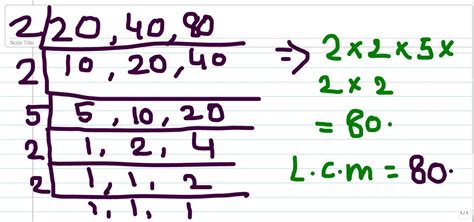 Note Title
2 | 20, 40, 80
2 | 10, 20, 40
5 | 5, 10, 20
2 | 1, 2, 4
2 | 1, 1, 2
1, 1, 1
=> 2 × 2 × 5 ×
2 × 2
= 80.
L.C.M = 80.
1/1